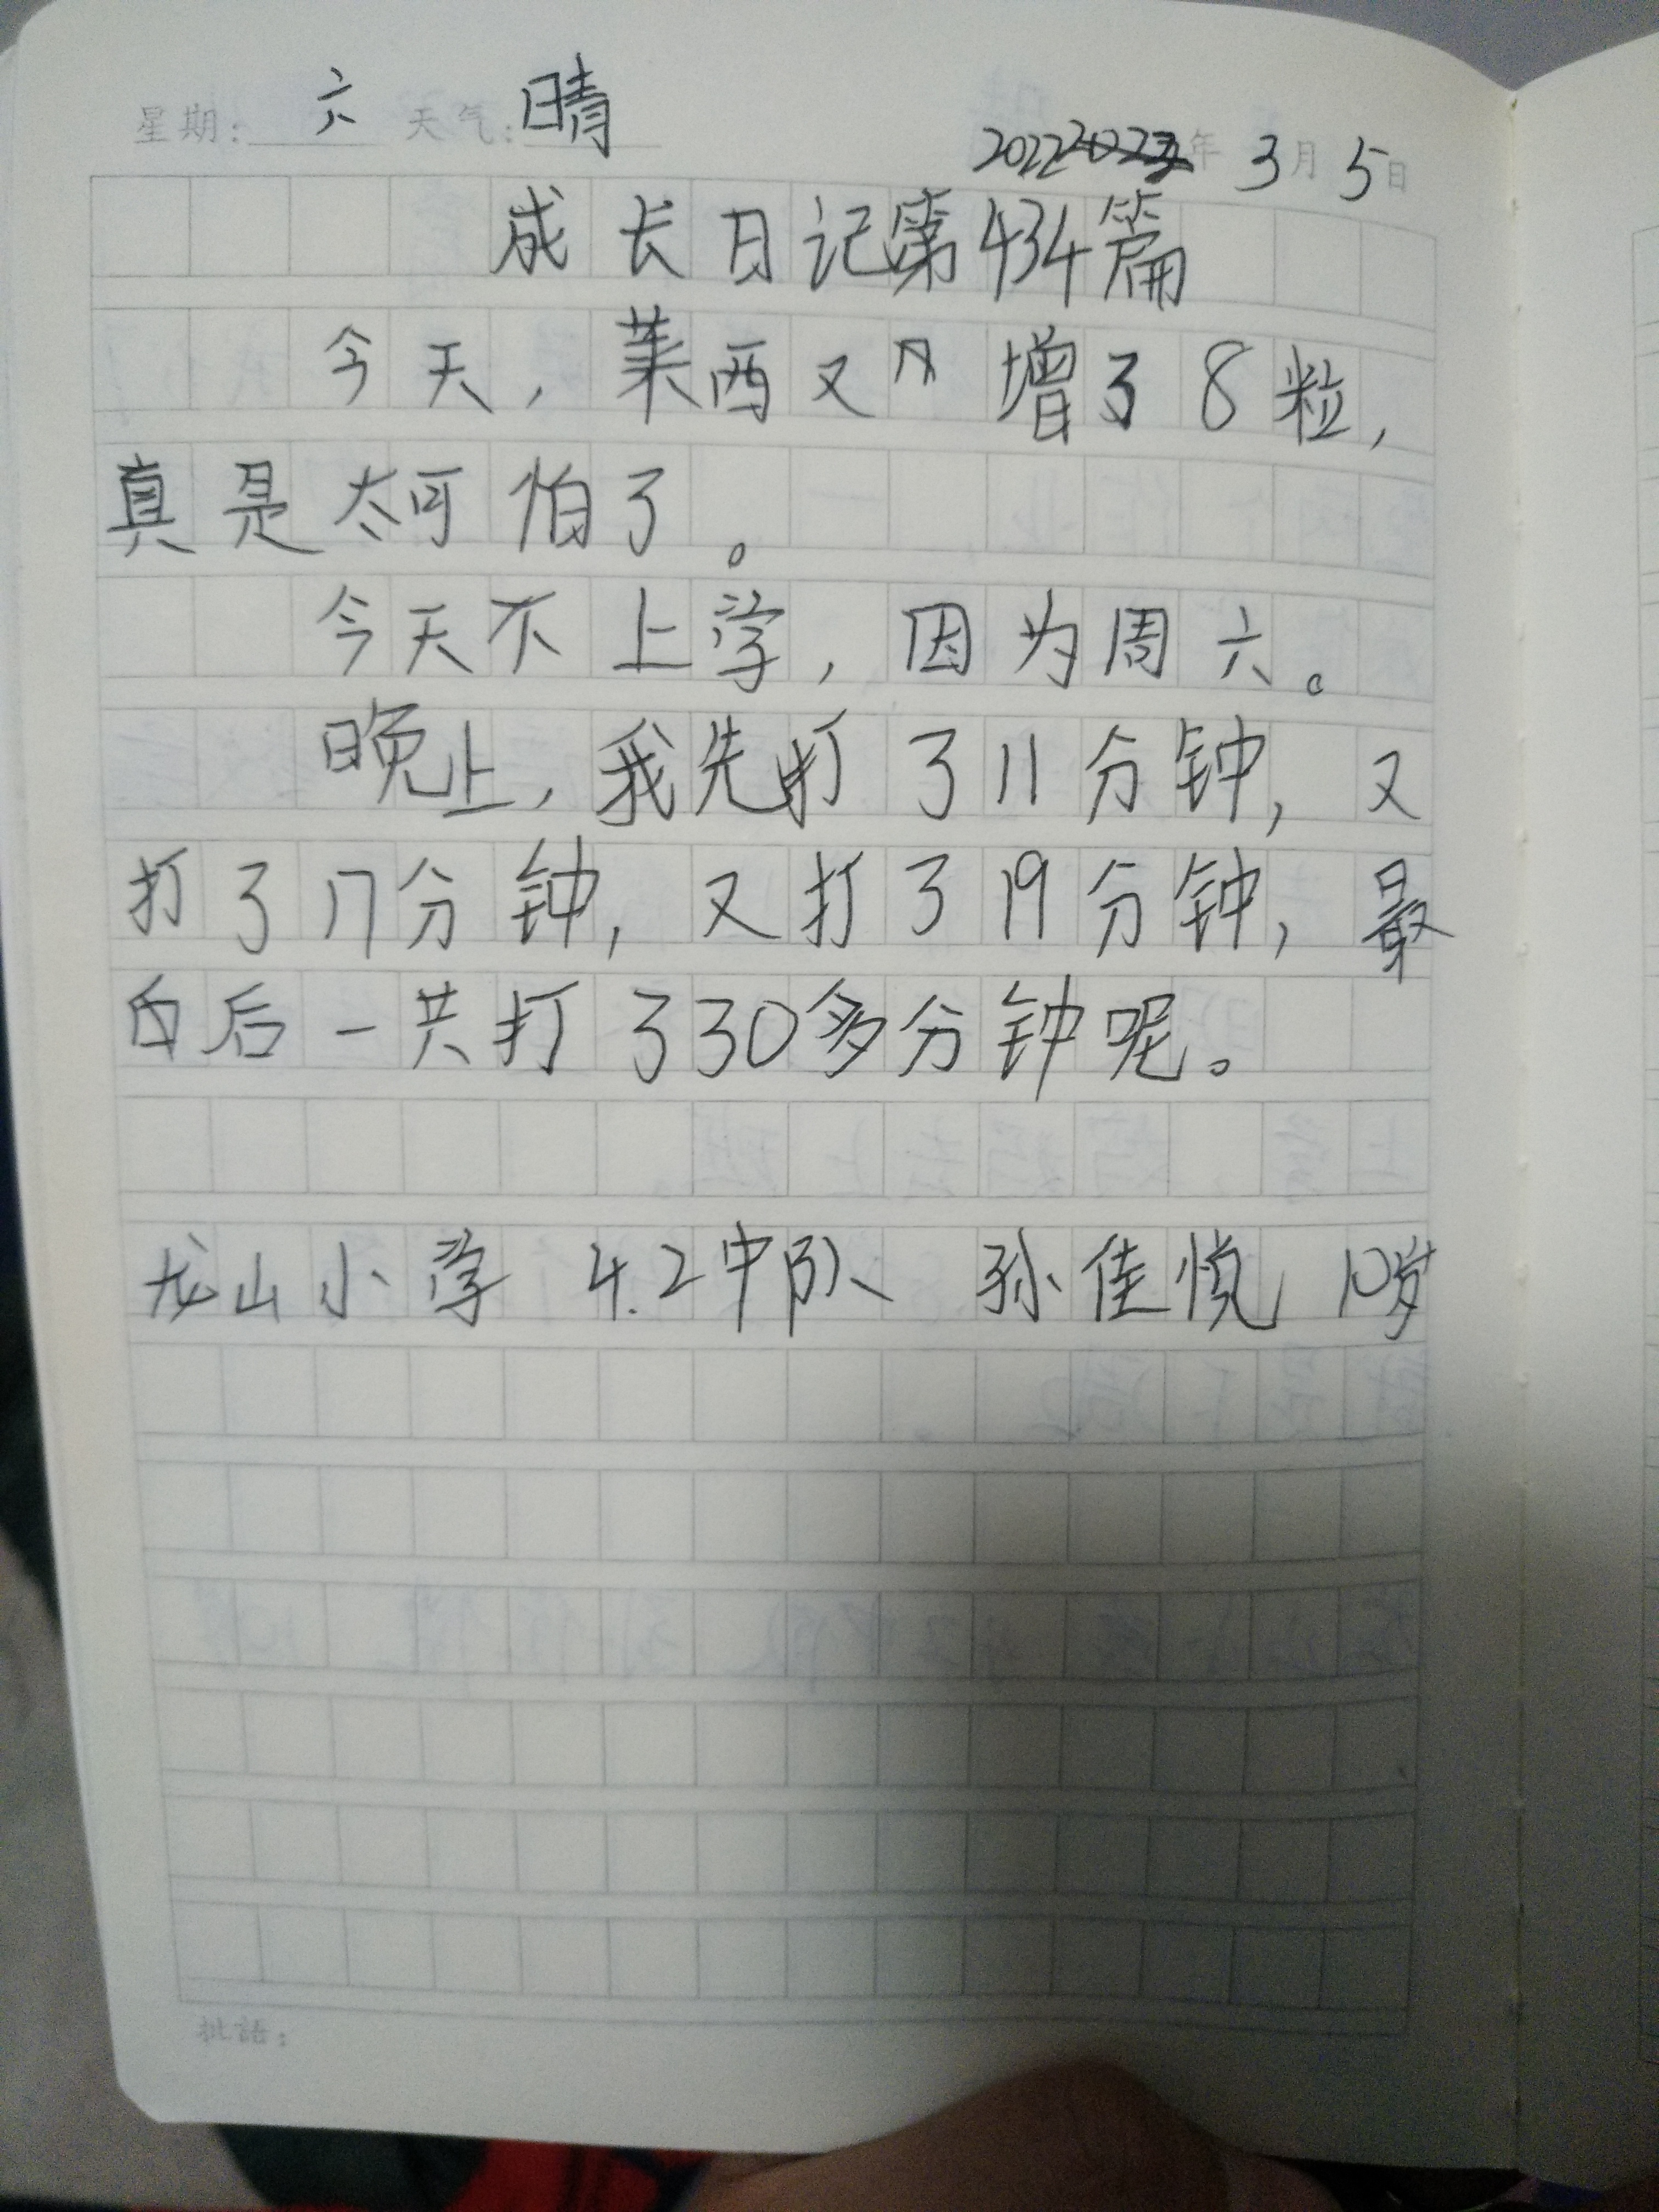 星期: 六 天气: 晴
2022年 3月 5日
成长日记第434篇
今天，莱西又增了8粒，
真是太可怕了。
今天不上学，因为周六。
晚上，我先打了11分钟，又
打了17分钟，又打了19分钟，最
后一共打了330多分钟呢。
龙山小学 4.2中队 孙佳悦 10岁
批语：